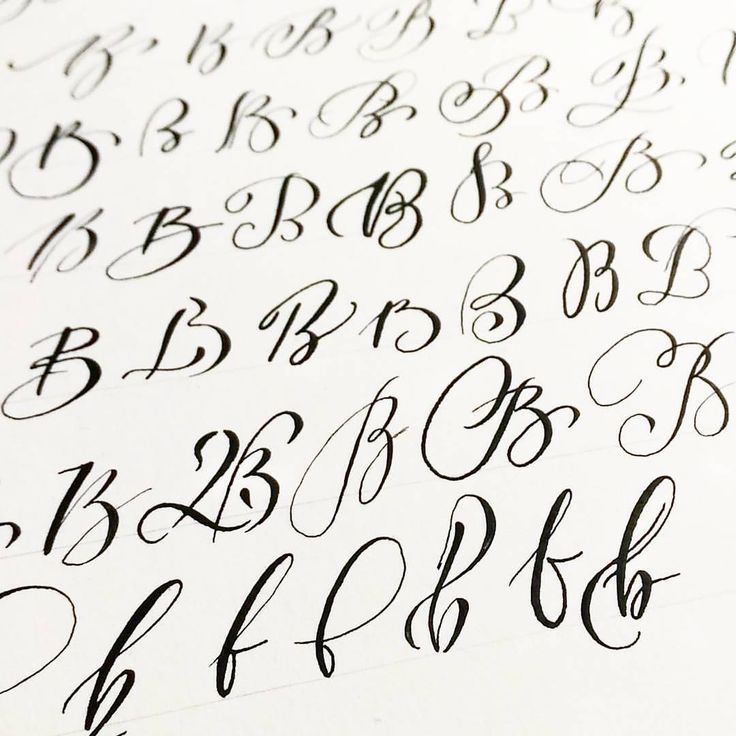 B B B B B B
B B B B B B
B B B B B B
B B B B B B B
B B B B B
b b b b b b